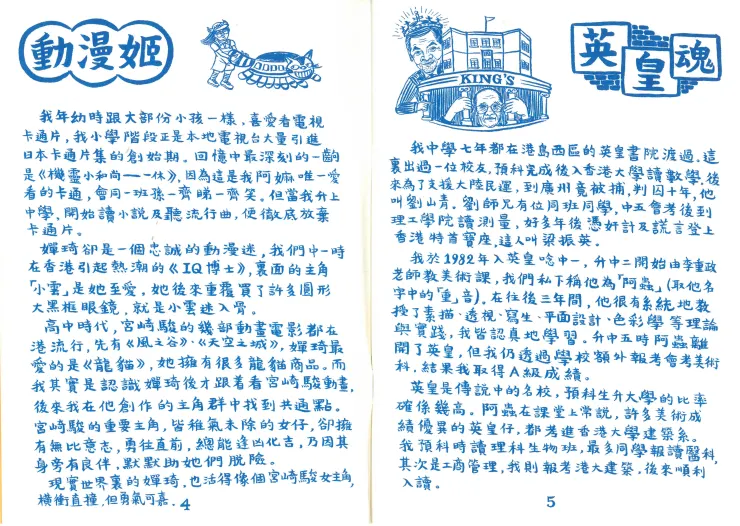 動漫姬
我年幼時跟大部份小孩一樣，喜愛看電視
卡通片，我小學階段正是本地電視台大量引進
日本卡通片集的創始期。回憶中最深刻的一齣
是《機靈小和尚——一休》，因為這是我阿嫲唯一愛
看的卡通，會同一班孫一齊睇一齊笑。但當我升上
中學，開始讀小說及聽流行曲，便徹底放棄
卡通片。
嬋琦卻是一個忠誠的動漫迷，我們中一時
在香港引起熱潮的《IQ博士》，裏面的主角
「小雲」是她至愛，她後來重覆買了許多圓形
大黑框眼鏡，就是小雲迷入骨。
高中時代，宮崎駿的幾部動畫電影都在
港流行，先有《風之谷》、《天空之城》，嬋琦最
愛的是《龍貓》，她擁有很多龍貓商品。而
我其實是認識嬋琦後才跟着看宮崎駿動畫，
後來我在他創作的主角群中找到共通點。
宮崎駿的重要主角，皆稚氣未除的女仔，卻擁
有無比意志，勇往直前，總能逢凶化吉，乃因其
身旁有良伴，默默助她們脫險。
現實世界裏的嬋琦，也活得像個宮崎駿女主角，
橫衝直撞，但勇氣可嘉。
4
KING'S
英皇魂
我中學七年都在港島西區的英皇書院渡過。這
裏出過一位校友，預科完成後入香港大學讀數學，後
來為了支援大陸民運，到廣州竟被捕，判囚十年，他
叫劉山青。劉師兄有位同班同學，中五會考後到
理工學院讀測量，好多年後憑奸計及謊言登上
香港特首寶座，這人叫梁振英。
我於1982年入英皇唸中一，升中二開始由李重政
老師教美術課，我們私下稱他為「阿蟲」（取他名
字中的「重」音）。在往後三年間，他很有系統地教
授了素描、透視、寫生、平面設計、色彩學等理論
與實踐，我皆認真地學習。升中五時阿蟲離
開了英皇，但我仍透過學校額外報考會考美術
科，結果我取得A級成績。
英皇是傳說中的名校，預科生升大學的比率
確係幾高。阿蟲在課堂上常說，許多美術成
績優異的英皇仔，都考進香港大學建築系。
我預科時讀理科生物班，最多同學報讀醫科，
其次是工商管理，我則報考港大建築，後來順利
入讀。
5